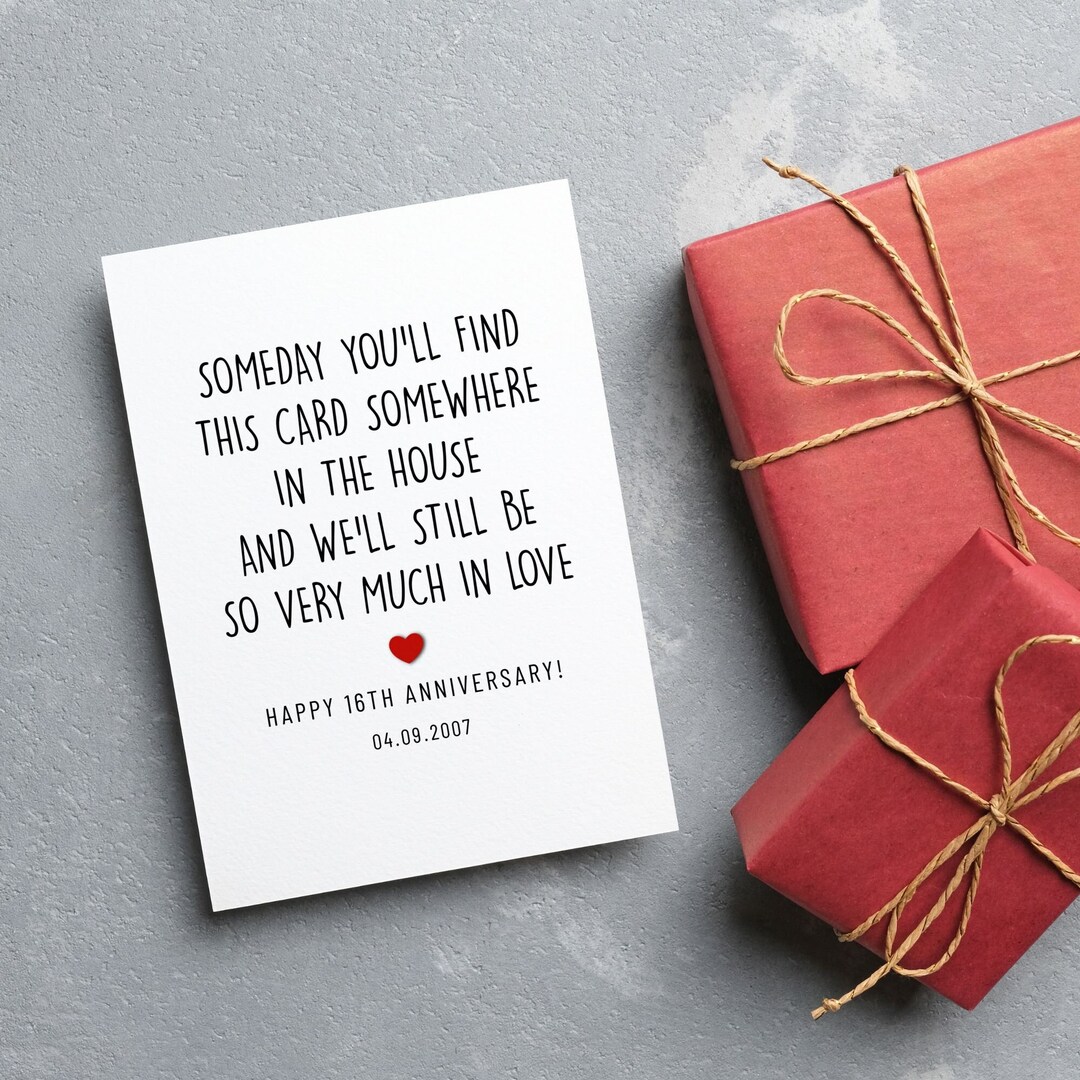 SOMEDAY YOU'LL FIND
THIS CARD SOMEWHERE
IN THE HOUSE
AND WE'LL STILL BE
SO VERY MUCH IN LOVE
HAPPY 16TH ANNIVERSARY!
04.09.2007